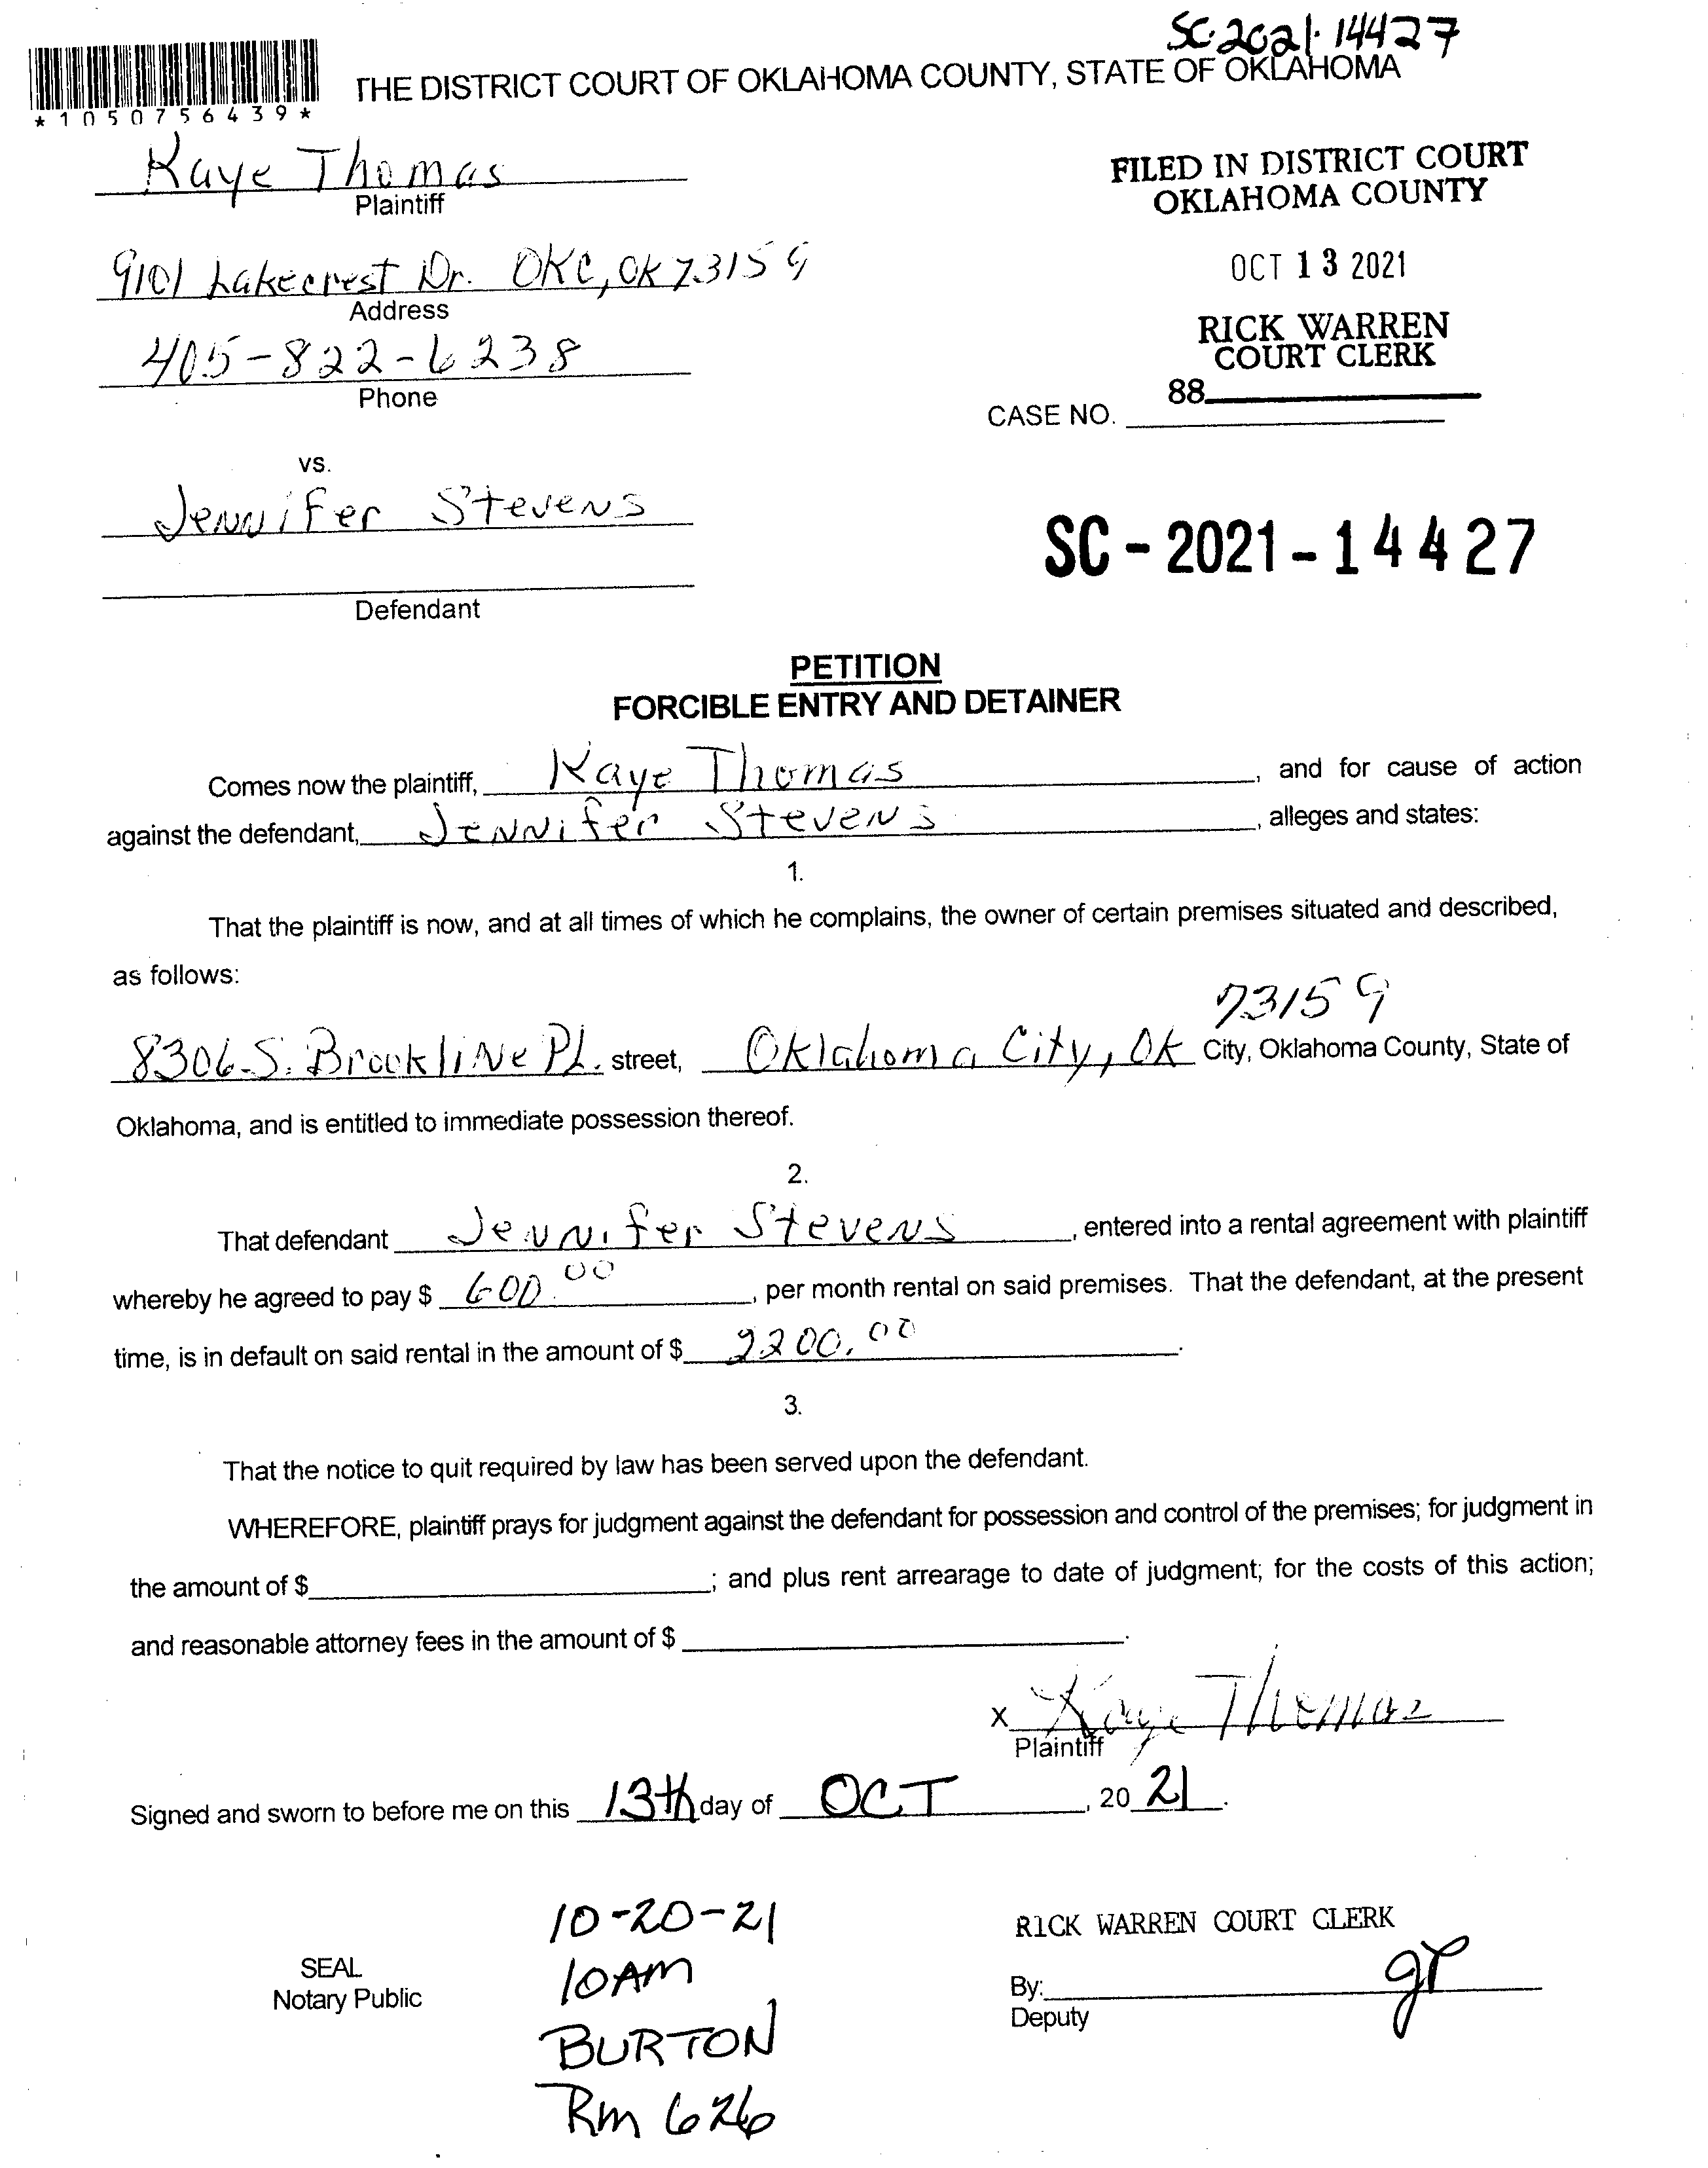 SC-2021-14427
THE DISTRICT COURT OF OKLAHOMA COUNTY, STATE OF OKLAHOMA
*1050756439*
Kaye Thomas
Plaintiff
FILED IN DISTRICT COURT
OKLAHOMA COUNTY
9101 Lakecrest Dr. OKC, OK 73159
Address
OCT 13 2021
405-822-6238
Phone
RICK WARREN
COURT CLERK
88
CASE NO.
vs.
Jennifer Stevens
Defendant
SC-2021-14427
PETITION
FORCIBLE ENTRY AND DETAINER
Comes now the plaintiff, Kaye Thomas, and for cause of action
against the defendant, Jennifer Stevens, alleges and states:
1.
That the plaintiff is now, and at all times of which he complains, the owner of certain premises situated and described,
as follows:
73159
8306 S. Brookline Pl. street, Oklahoma City, OK City, Oklahoma County, State of
Oklahoma, and is entitled to immediate possession thereof.
2.
That defendant Jennifer Stevens, entered into a rental agreement with plaintiff
whereby he agreed to pay $ 600.00, per month rental on said premises. That the defendant, at the present
time, is in default on said rental in the amount of $ 2200.00.
3.
That the notice to quit required by law has been served upon the defendant.
WHEREFORE, plaintiff prays for judgment against the defendant for possession and control of the premises; for judgment in
the amount of $; and plus rent arrearage to date of judgment; for the costs of this action;
and reasonable attorney fees in the amount of $.
X Kaye Thomas
Plaintiff
Signed and sworn to before me on this 13th day of OCT, 20 21.
10-20-21
10AM
BURTON
Rm 626
SEAL
Notary Public
RICK WARREN COURT CLERK
By: gr
Deputy